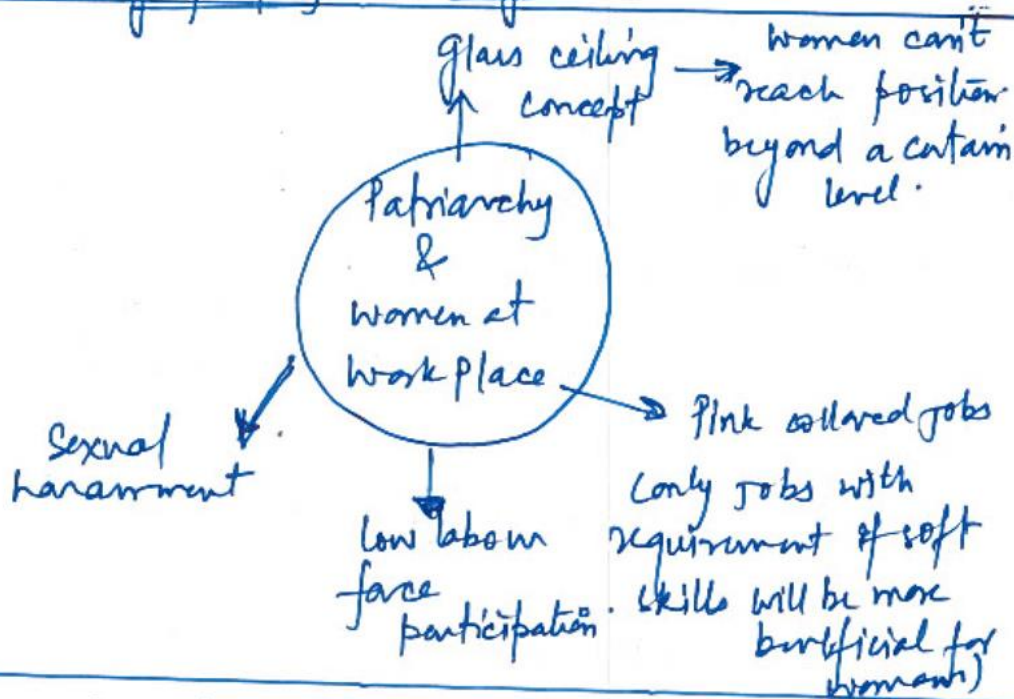 Glass ceiling
concept
women can't
reach position
beyond a certain
level.
Patriarchy
&
women at
work place
Sexual
harassment
low labour
force
participation.
Pink collared jobs
(only jobs with
requirement of soft
skills will be more
beneficial for
woman)